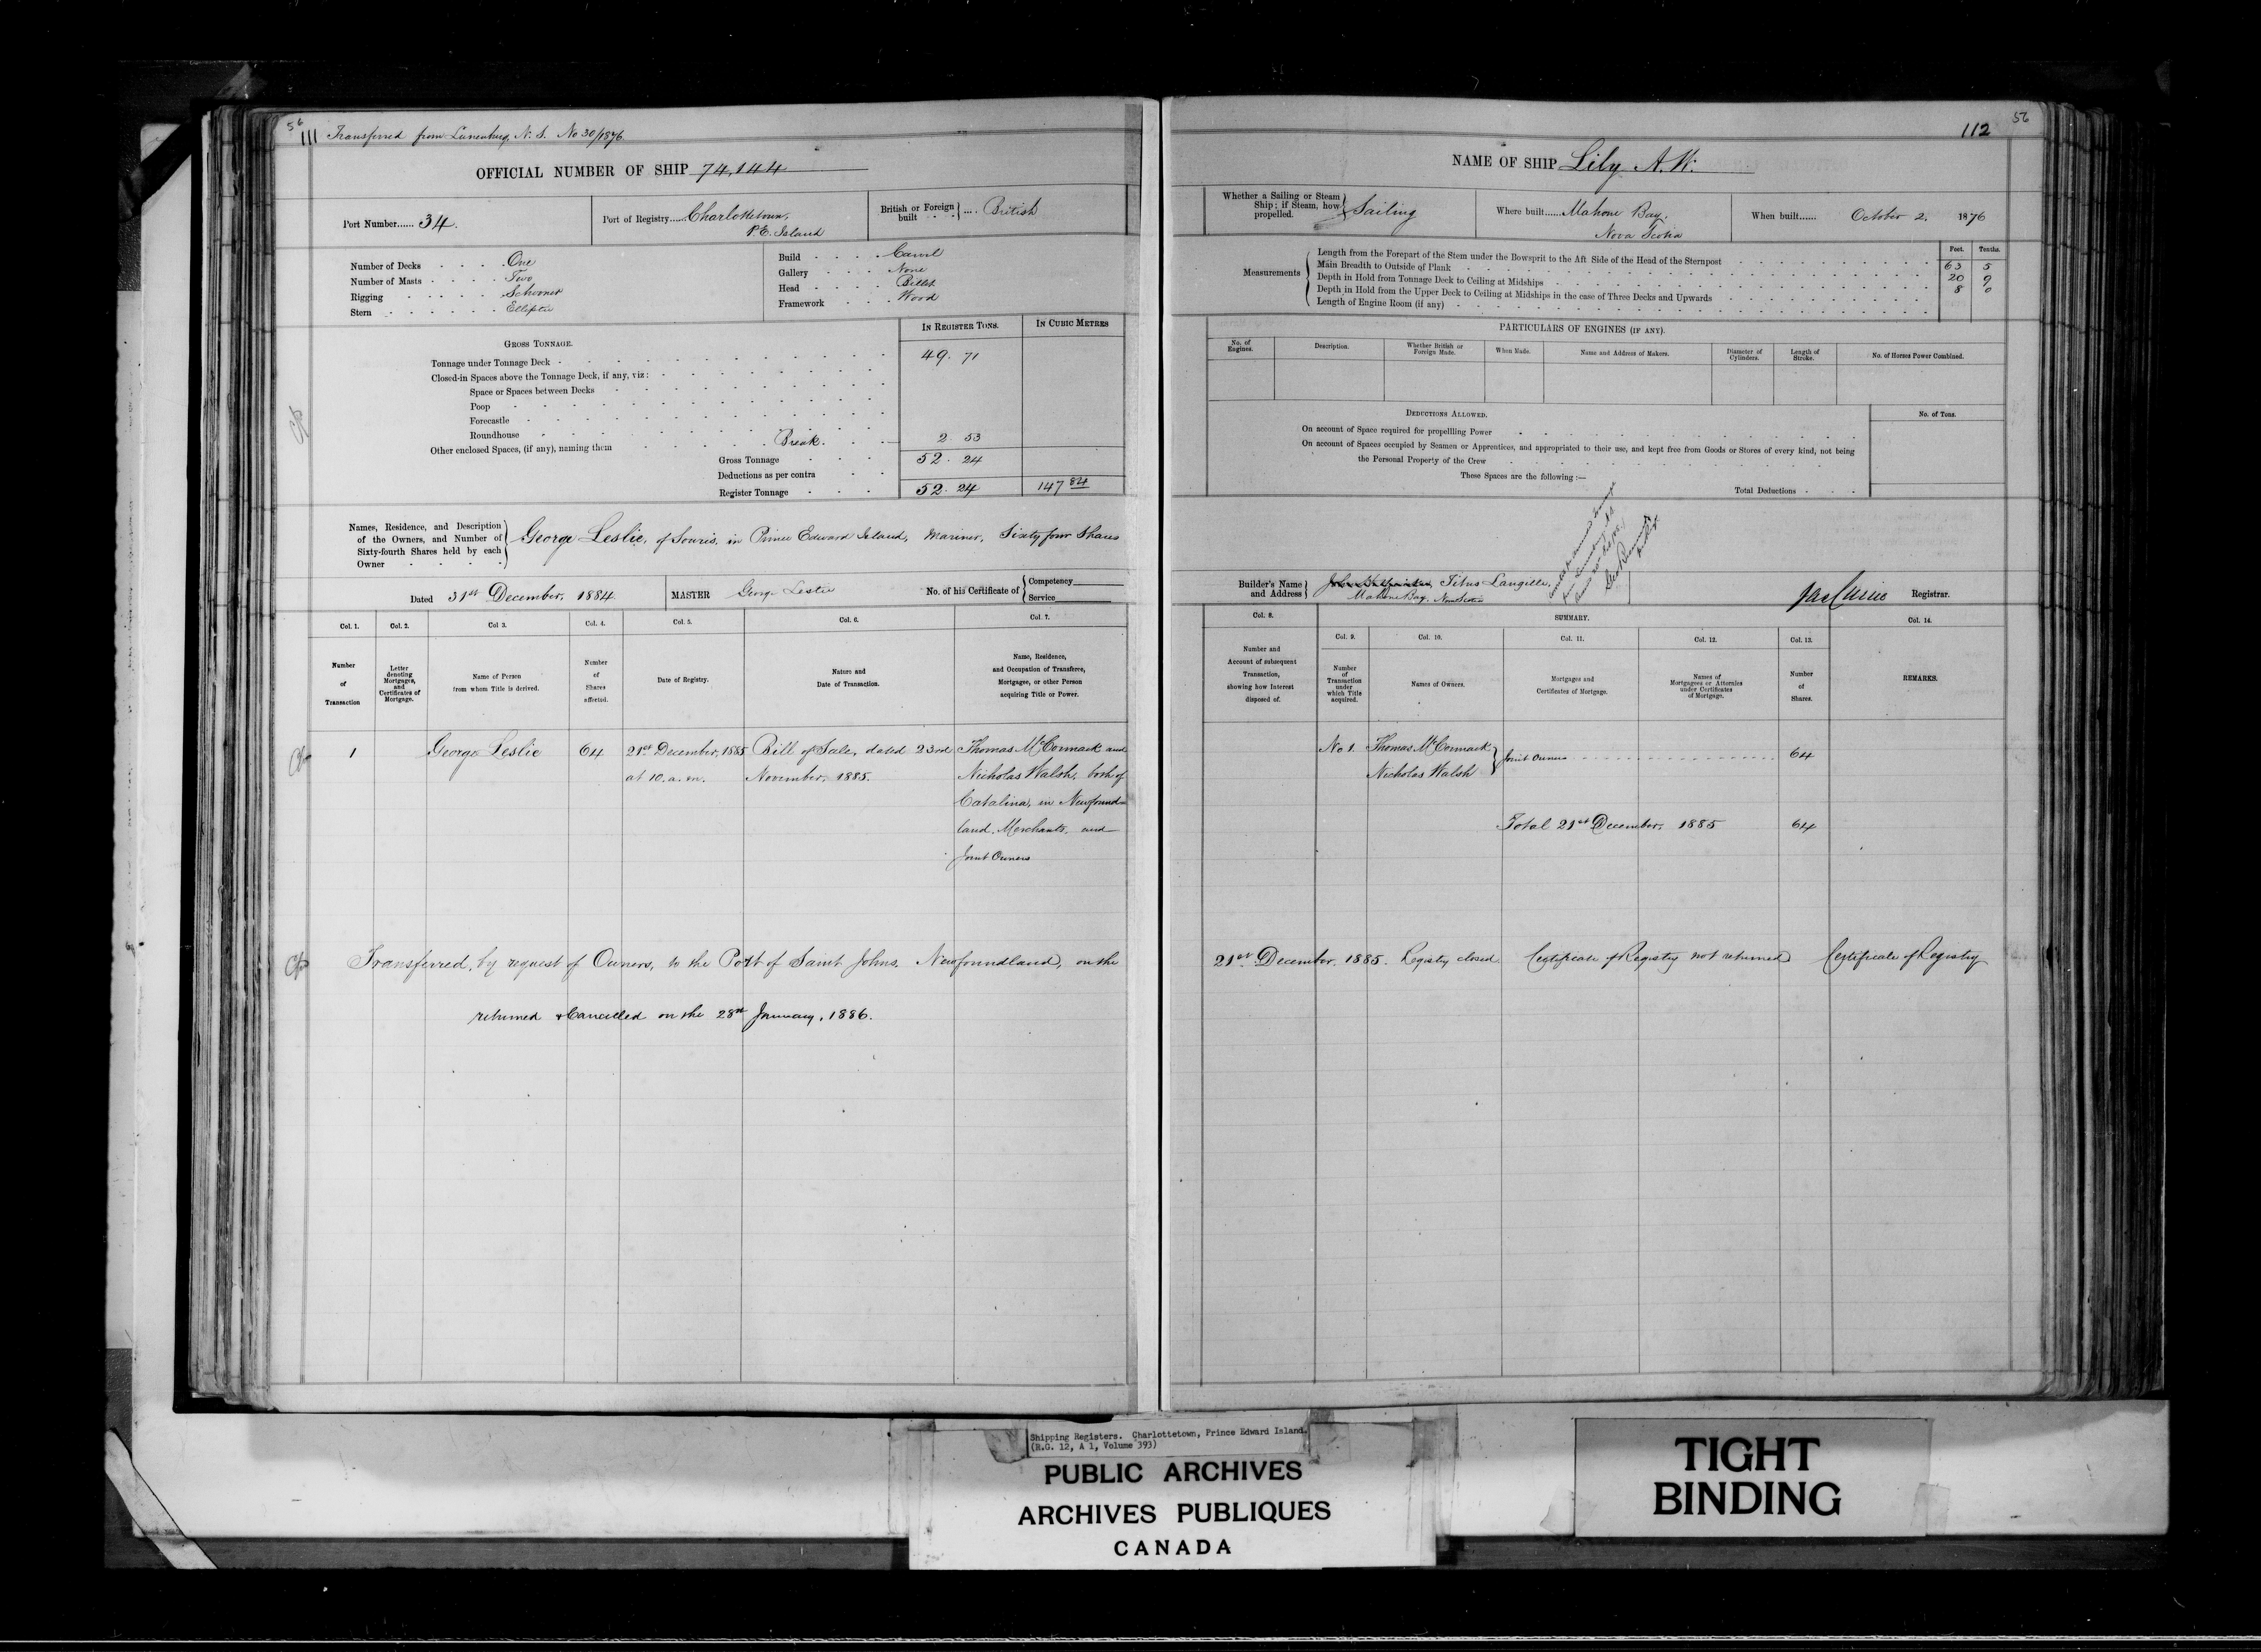 56
111 Transferred from Lunenburg, N. S. No 30/1876
OFFICIAL NUMBER OF SHIP 74,144
Port Number...... 34.
Port of Registry.... Charlottetown,
P.E. Island
British or Foreign built .... British
Number of Decks One
Number of Masts Two
Rigging Schooner
Stern Elliptic
Build Carvel
Gallery None
Head Billet
Framework Wood
GROSS TONNAGE.
IN REGISTER TONS.
IN CUBIC METRES
Tonnage under Tonnage Deck 49. 71
Closed-in Spaces above the Tonnage Deck, if any, viz:
Space or Spaces between Decks
Poop
Forecastle
Roundhouse
Other enclosed Spaces, (if any), naming them Break. 2 53
Gross Tonnage 52. 24
Deductions as per contra
Register Tonnage 52. 24 147 84
Names, Residence, and Description of the Owners, and Number of Sixty-fourth Shares held by each Owner
George Leslie, of Souris, in Prince Edward Island, Mariner, Sixty four Shares
Dated 31st December, 1884
MASTER George Leslie
No. of his Certificate of Competency
Service
Col. 1. Col. 2. Col 3. Col. 4. Col. 5. Col. 6. Col. 7.
Number of Transaction
Letter denoting Mortgages, and Certificates of Mortgage.
Name of Person from whom Title is derived.
Number of Shares affected.
Date of Registry.
Nature and Date of Transaction.
Name, Residence, and Occupation of Transferee, Mortgagee, or other Person acquiring Title or Power.
1 George Leslie 64 21st December, 1885 Bill of Sale, dated 23rd Thomas McCormack and
at 10. a.m. November, 1885. Nicholas Walsh, both of
Catalina, in Newfound-
land, Merchants, and
Joint Owners
Transferred, by request of Owners, to the Port of Saint Johns, Newfoundland, on the
returned & Cancelled on the 28th January, 1886.
112
56
NAME OF SHIP Lily A.W.
Whether a Sailing or Steam Ship; if Steam, how propelled. Sailing
Where built...... Mahone Bay,
Nova Scotia
When built...... October 2. 1876
Feet. Tenths.
Measurements
Length from the Forepart of the Stem under the Bowsprit to the Aft Side of the Head of the Sternpost 63 5
Main Breadth to Outside of Plank 20 9
Depth in Hold from Tonnage Deck to Ceiling at Midships 8 0
Depth in Hold from the Upper Deck to Ceiling at Midships in the case of Three Decks and Upwards
Length of Engine Room (if any)
PARTICULARS OF ENGINES (IF ANY).
No. of Engines.
Description.
Whether British or Foreign Made.
When Made.
Name and Address of Makers.
Diameter of Cylinders.
Length of Stroke.
No. of Horses Power Combined.
DEDUCTIONS ALLOWED.
No. of Tons.
On account of Space required for propellling Power
On account of Spaces occupied by Seamen or Apprentices, and appropriated to their use, and kept free from Goods or Stores of every kind, not being
the Personal Property of the Crew
These Spaces are the following :—
Total Deductions
Builder's Name and Address
Titus Langille,
Mahone Bay, Nova Scotia
Jas Currie Registrar.
Col. 8.
SUMMARY.
Col. 14.
Col. 9. Col. 10. Col. 11. Col. 12. Col. 13.
Number and Account of subsequent Transaction, showing how Interest disposed of.
Number of Transaction under which Title acquired.
Names of Owners.
Mortgages and Certificates of Mortgage.
Names of Mortgagees or Attornies under Certificates of Mortgage.
Number of Shares.
REMARKS.
No 1. Thomas McCormack
Nicholas Walsh Joint Owners 64
Total 21st December, 1885 64
21st December, 1885. Registry closed Certificate of Registry not returned Certificate of Registry
Shipping Registers. Charlottetown, Prince Edward Island.
(R.G. 12, A 1, Volume 393)
PUBLIC ARCHIVES
ARCHIVES PUBLIQUES
CANADA
TIGHT
BINDING